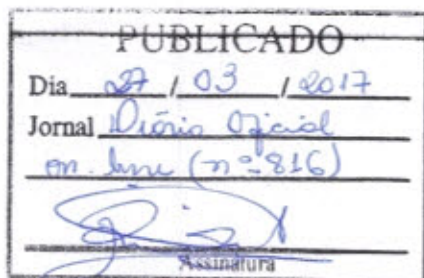 PUBLICADO
Dia 27 / 03 / 2017
Jornal Diário Oficial
on line (nº 816)
Assinatura